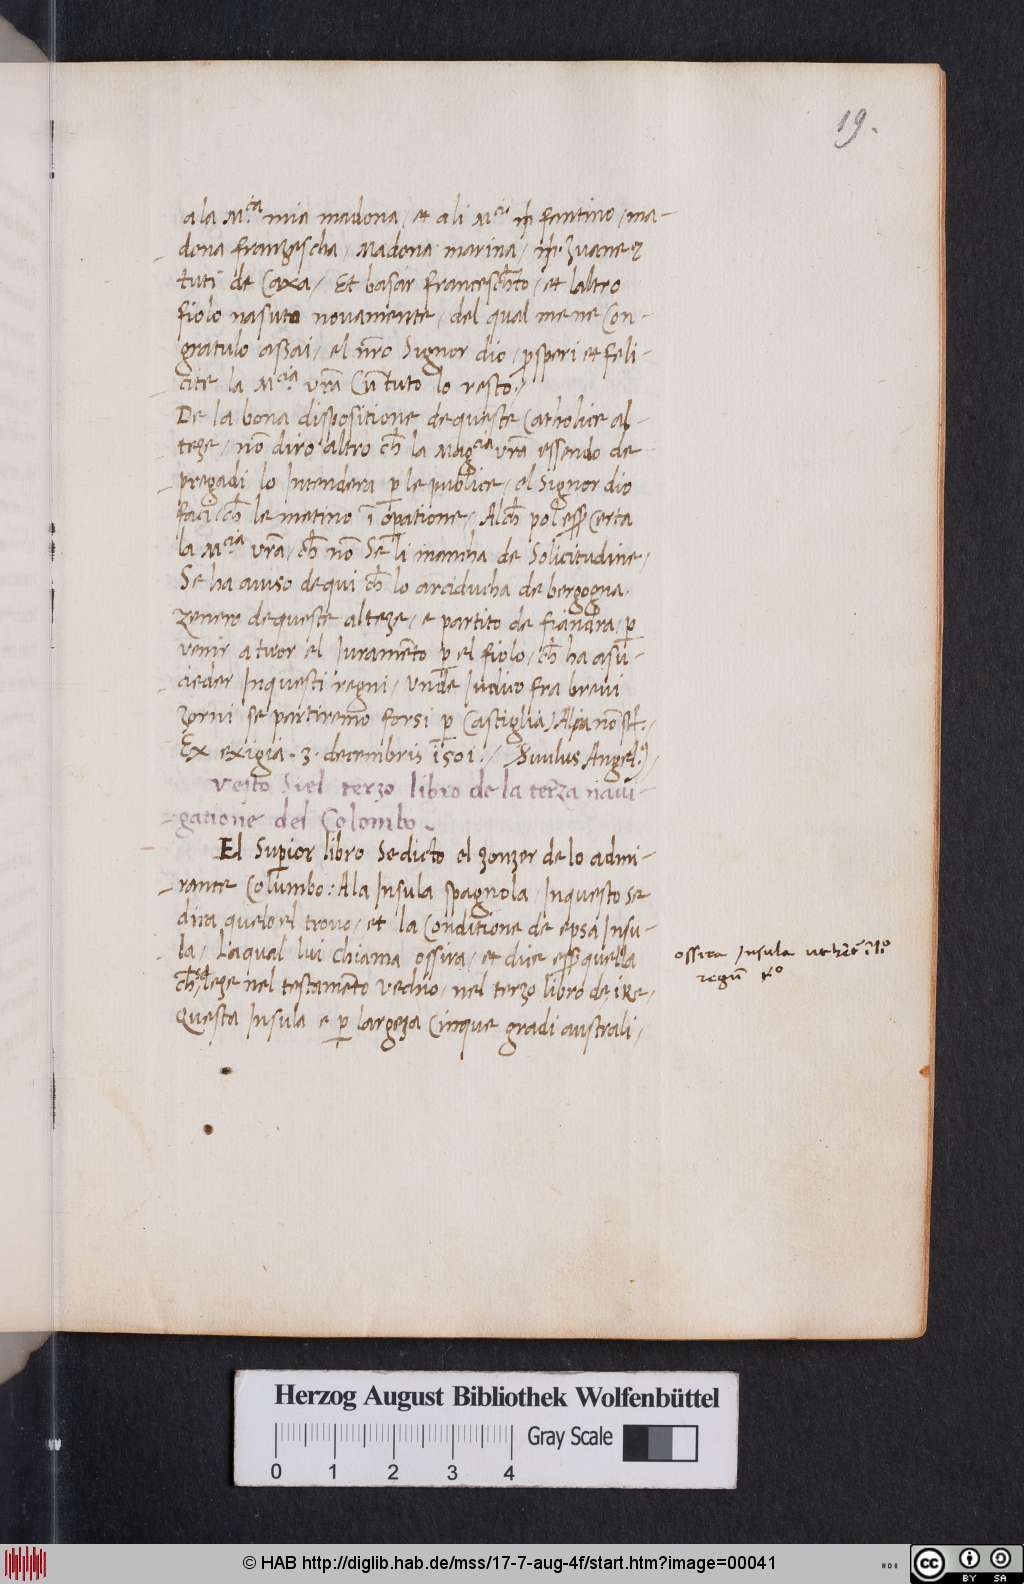 19.
a la M.cia mia madona / et a li M.ci ɱ fantino / ma-
dona franzescha / Madona marina / ɱ. zuane et
tuti de Caxa / Et basar francesch̄to / et laltro
fiolo nasuto novamente / del qual mene Con-
gratulo assai / el nr̄o Signor dio / ꝓsperi et feli-
cite la M.cia vr̄a Cū tuto lo resto /
De la bona dispositione de queste Catholice al-
teze / nō diro altro ch̄ la Mag.cia vr̄a essendo de
pregadi lo Intendera ꝑ le publice / el Signor dio
faci ch̄ le metino ī oꝑatione / Alch̄ pol eēr Certa
la M.cia vr̄a / ch̄ nō Se li mancha de Solicitudine /
Se ha aviso de qui ch̄ lo arciducha de bergogna
zenero de queste alteze / e partito de fiandra / ꝑ
venir a tuor el Iuramēto ꝑ el fiolo / ch̄ ha a su-
cieder In questi regni / vnde Iudico fra brevi
zorni se partiremo forsi ꝑ Castiglia / Alia nō st.
Ex exigia . 3 . decembris 1501 . / Svulus Angel.9 /
Questo Siel terzo libro de la terza navi-
gatione del Colombo.
El Suꝑior libro Se dicto el zonzer de lo admi-
rante Columbo : A la Insula spagnola / In questo se
dira quelo el trovo / et la Conditione de epsa Insu-
la / Laqual lui chiama ossira / et dice eēr quella
ch̄ se leze nel testamēto vechio / nel terzo libro de i Re /
Questa Insula e ꝑ largeza Cinque gradi australi /
ossira Insula
regū
Herzog August Bibliothek Wolfenbüttel
Gray Scale
0 1 2 3 4
© HAB http://diglib.hab.de/mss/17-7-aug-4f/start.htm?image=00041
cc BY SA